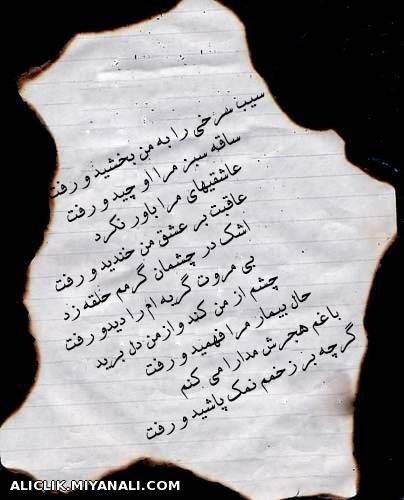 سیب سرخی را به من بخشید و رفت
ساقه سبز مرا او چید و رفت
عاشقیهای مرا باور نکرد
عاقبت بر عشق من خندید و رفت
اشک در چشمان گرمم حلقه زد
بی مروت گریه ام را دید و رفت
چشم از من کند و از من دل برید
حال بیمار مرا فهمید و رفت
با غم هجرش مدارا می کنم
گر چه بر زخمم نمک پاشید و رفت
ALICLIK.MIYANALI.COM